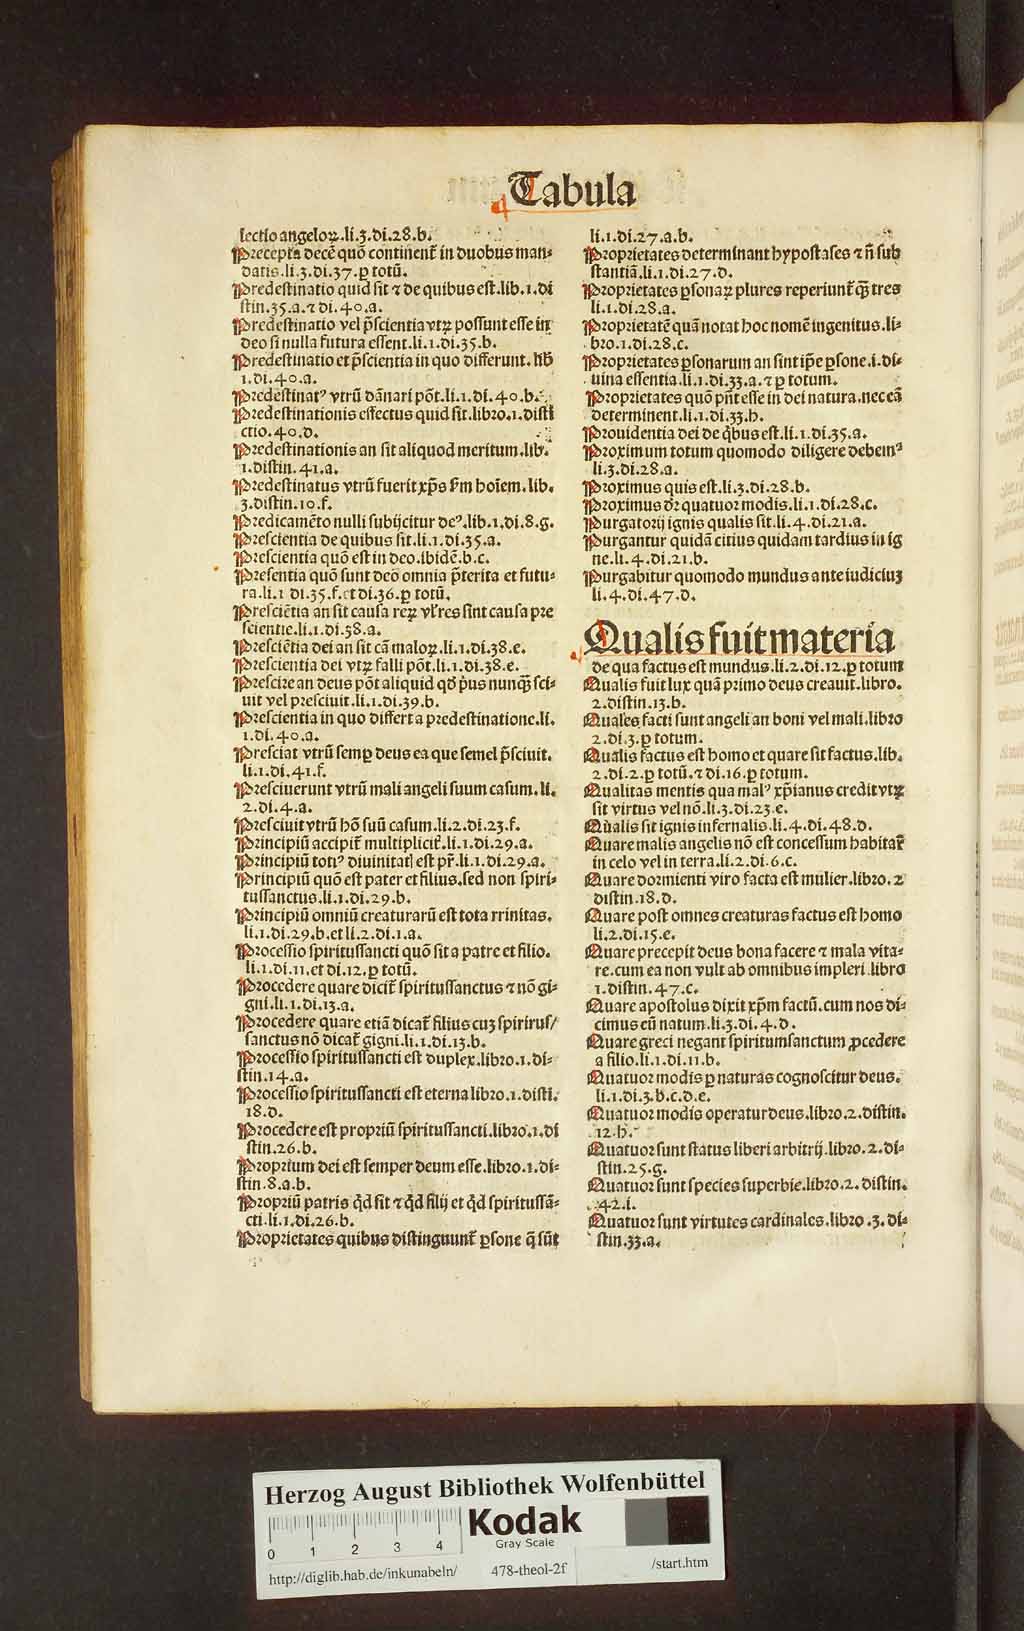 Tabula
lectio angeloꝝ.li.3.di.28.b.
Precepta decē quō continent̄ in duobus man-
datis.li.3.di.37.ꝑ totū.
Predestinatio quid sit ⁊ de quibus est.lib.1.di
stin.35.a.⁊ di.40.a.
Predestinatio vel p̄scientia vtꝝ possunt esse in
deo si nulla futura essent.li.1.di.35.b.
Predestinatio et p̄scientia in quo differunt.lib̄
1.di.40.a.
Predestinatꝰ vtrū dānari pōt.li.1.di.40.b.
Predestinationis effectus quid sit.libro.1.disti
ctio.40.d.
Predestinationis an sit aliquod meritum.lib.
1.distin.41.a.
Predestinatus vtrū fuerit xp̄s ẜm hoīem.lib.
3.distin.10.f.
Predicamēto nulli subijcitur deꝰ.lib.1.di.8.g.
Prescientia de quibus sit.li.1.di.35.a.
Prescientia quō est in deo.ibidē.b.c.
Presentia quō sunt deo omnia p̄terita et futu-
ra.li.1 di.35.f.et di.36.ꝑ totū.
Presciētia an sit causa reꝝ vl' res sint causa pre
scientie.li.1.di.38.a.
Presciētia dei an sit cā maloꝝ.li.1.di.38.e.
Prescientia dei vtꝝ falli pōt.li.1.di.38.e.
Prescire an deus pōt aliquid qd̄ p̍us nunqȝ sci-
uit vel presciuit.li.1.di.39.b.
Prescientia in quo differt a predestinatione.li.
1.di.40.a.
Presciat vtrū semꝑ deus ea que semel p̄sciuit.
li.1.di.41.f.
Presciuerunt vtrū mali angeli suum casum.li.
2.di.4.a.
Presciuit vtrū hō suū casum.li.2.di.23.f.
Principiū accipit̄ multiplicit̄.li.1.di.29.a.
Principiū totiꝰ diuinitatꝭ est pr̄.li.1.di.29.a.
Principiū quō est pater et filius.sed non spiri-
tussanctus.li.1.di.29.b.
Principiū omniū creaturarū est tota trinitas.
li.1.di.29.b.et li.2.di.1.a.
Processio spiritussancti quō sit a patre et filio.
li.1.di.11.et di.12.ꝑ totū.
Procedere quare dicit̄ spiritussanctus ⁊ nō gi-
gni.li.1.di.13.a.
Procedere quare etiā dicat̄ filius cuȝ spiritus/
sanctus nō dicat̄ gigni.li.1.di.13.b.
Processio spiritussancti est duplex.libro.1.di-
stin.14.a.
Processio spiritussancti est eterna libro.1.disti.
18.d.
Procedere est propriū spiritussancti.libro.1.di
stin.26.b.
Proprium dei est semper deum esse.libro.1.di-
stin.8.a.b.
Propriū patris qd̓ sit ⁊ qd̓ filij et qd̓ spiritussā-
cti.li.1.di.26.b.
Proprietates quibus distinguunt̄ ꝑsone q̄ sūt
li.1.di.27.a.b.
Proprietates determinant hypostases ⁊ n̄ sub
stantiā.li.1.di.27.d.
Proprietates ꝑsonaꝝ plures reperiunt̄ qȝ tres
li.1.di.28.a.
Proprietatē quā notat hoc nomē ingenitus.li-
bro.1.di.28.c.
Proprietates ꝑsonarum an sint ip̄e ꝑsone.i.di-
uina essentia.li.1.di.33.a.⁊ ꝑ totum.
Proprietates quō pn̄t esse in dei natura.nec eā
determinent.li.1.di.33.b.
Prouidentia dei de qͥbus est.li.1.di.35.a.
Proximum totum quomodo diligere debemꝰ
li.3.di.28.a.
Proximus quis est.li.3.di.28.b.
Proximus dr̄ quatuor modis.li.1.di.28.c.
Purgatorij ignis qualis sit.li.4.di.21.a.
Purgantur quidā citius quidam tardius in ig
ne.li.4.di.21.b.
Purgabitur quomodo mundus ante iudiciuȝ
li.4.di.47.d.
Qualis fuit materia
de qua factus est mundus.li.2.di.12.ꝑ totum
Qualis fuit lux quā primo deus creauit.libro.
2.distin.13.b.
Quales facti sunt angeli an boni vel mali.libro
2.di.3.ꝑ totum.
Qualis factus est homo et quare sit factus.lib.
2.di.2.ꝑ totū.⁊ di.16.ꝑ totum.
Qualitas mentis qua malꝰ xp̄ianus credit vtꝝ
sit virtus vel nō.li.3.di.23.e.
Qualis sit ignis infernalis.li.4.di.48.d.
Quare malis angelis nō est concessum habitar̄
in celo vel in terra.li.2.di.6.c.
Quare dormienti viro facta est mulier.libro.2
distin.18.d.
Quare post omnes creaturas factus est homo
li.2.di.15.e.
Quare precepit deus bona facere ⁊ mala vita-
re.cum ea non vult ab omnibus impleri.libro
1.distin.47.c.
Quare apostolus dixit xp̄m factū.cum nos di-
cimus eū natum.li.3.di.4.d.
Quare greci negant spiritumsanctum ꝓcedere
a filio.li.1.di.11.b.
Quatuor modis ꝑ naturas cognoscitur deus.
li.1.di.3.b.c.d.e.
Quatuor modis operatur deus.libro.2.distin.
12.h.
Quatuor sunt status liberi arbitrij.libro.2.di-
stin.25.g.
Quatuor sunt species superbie.libro.2.distin.
42.i.
Quatuor sunt virtutes cardinales.libro.3.di-
stin.33.a.
Herzog August Bibliothek Wolfenbüttel
0 1 2 3 4
Kodak
Gray Scale
http://diglib.hab.de/inkunabeln/ 478-theol-2f /start.htm